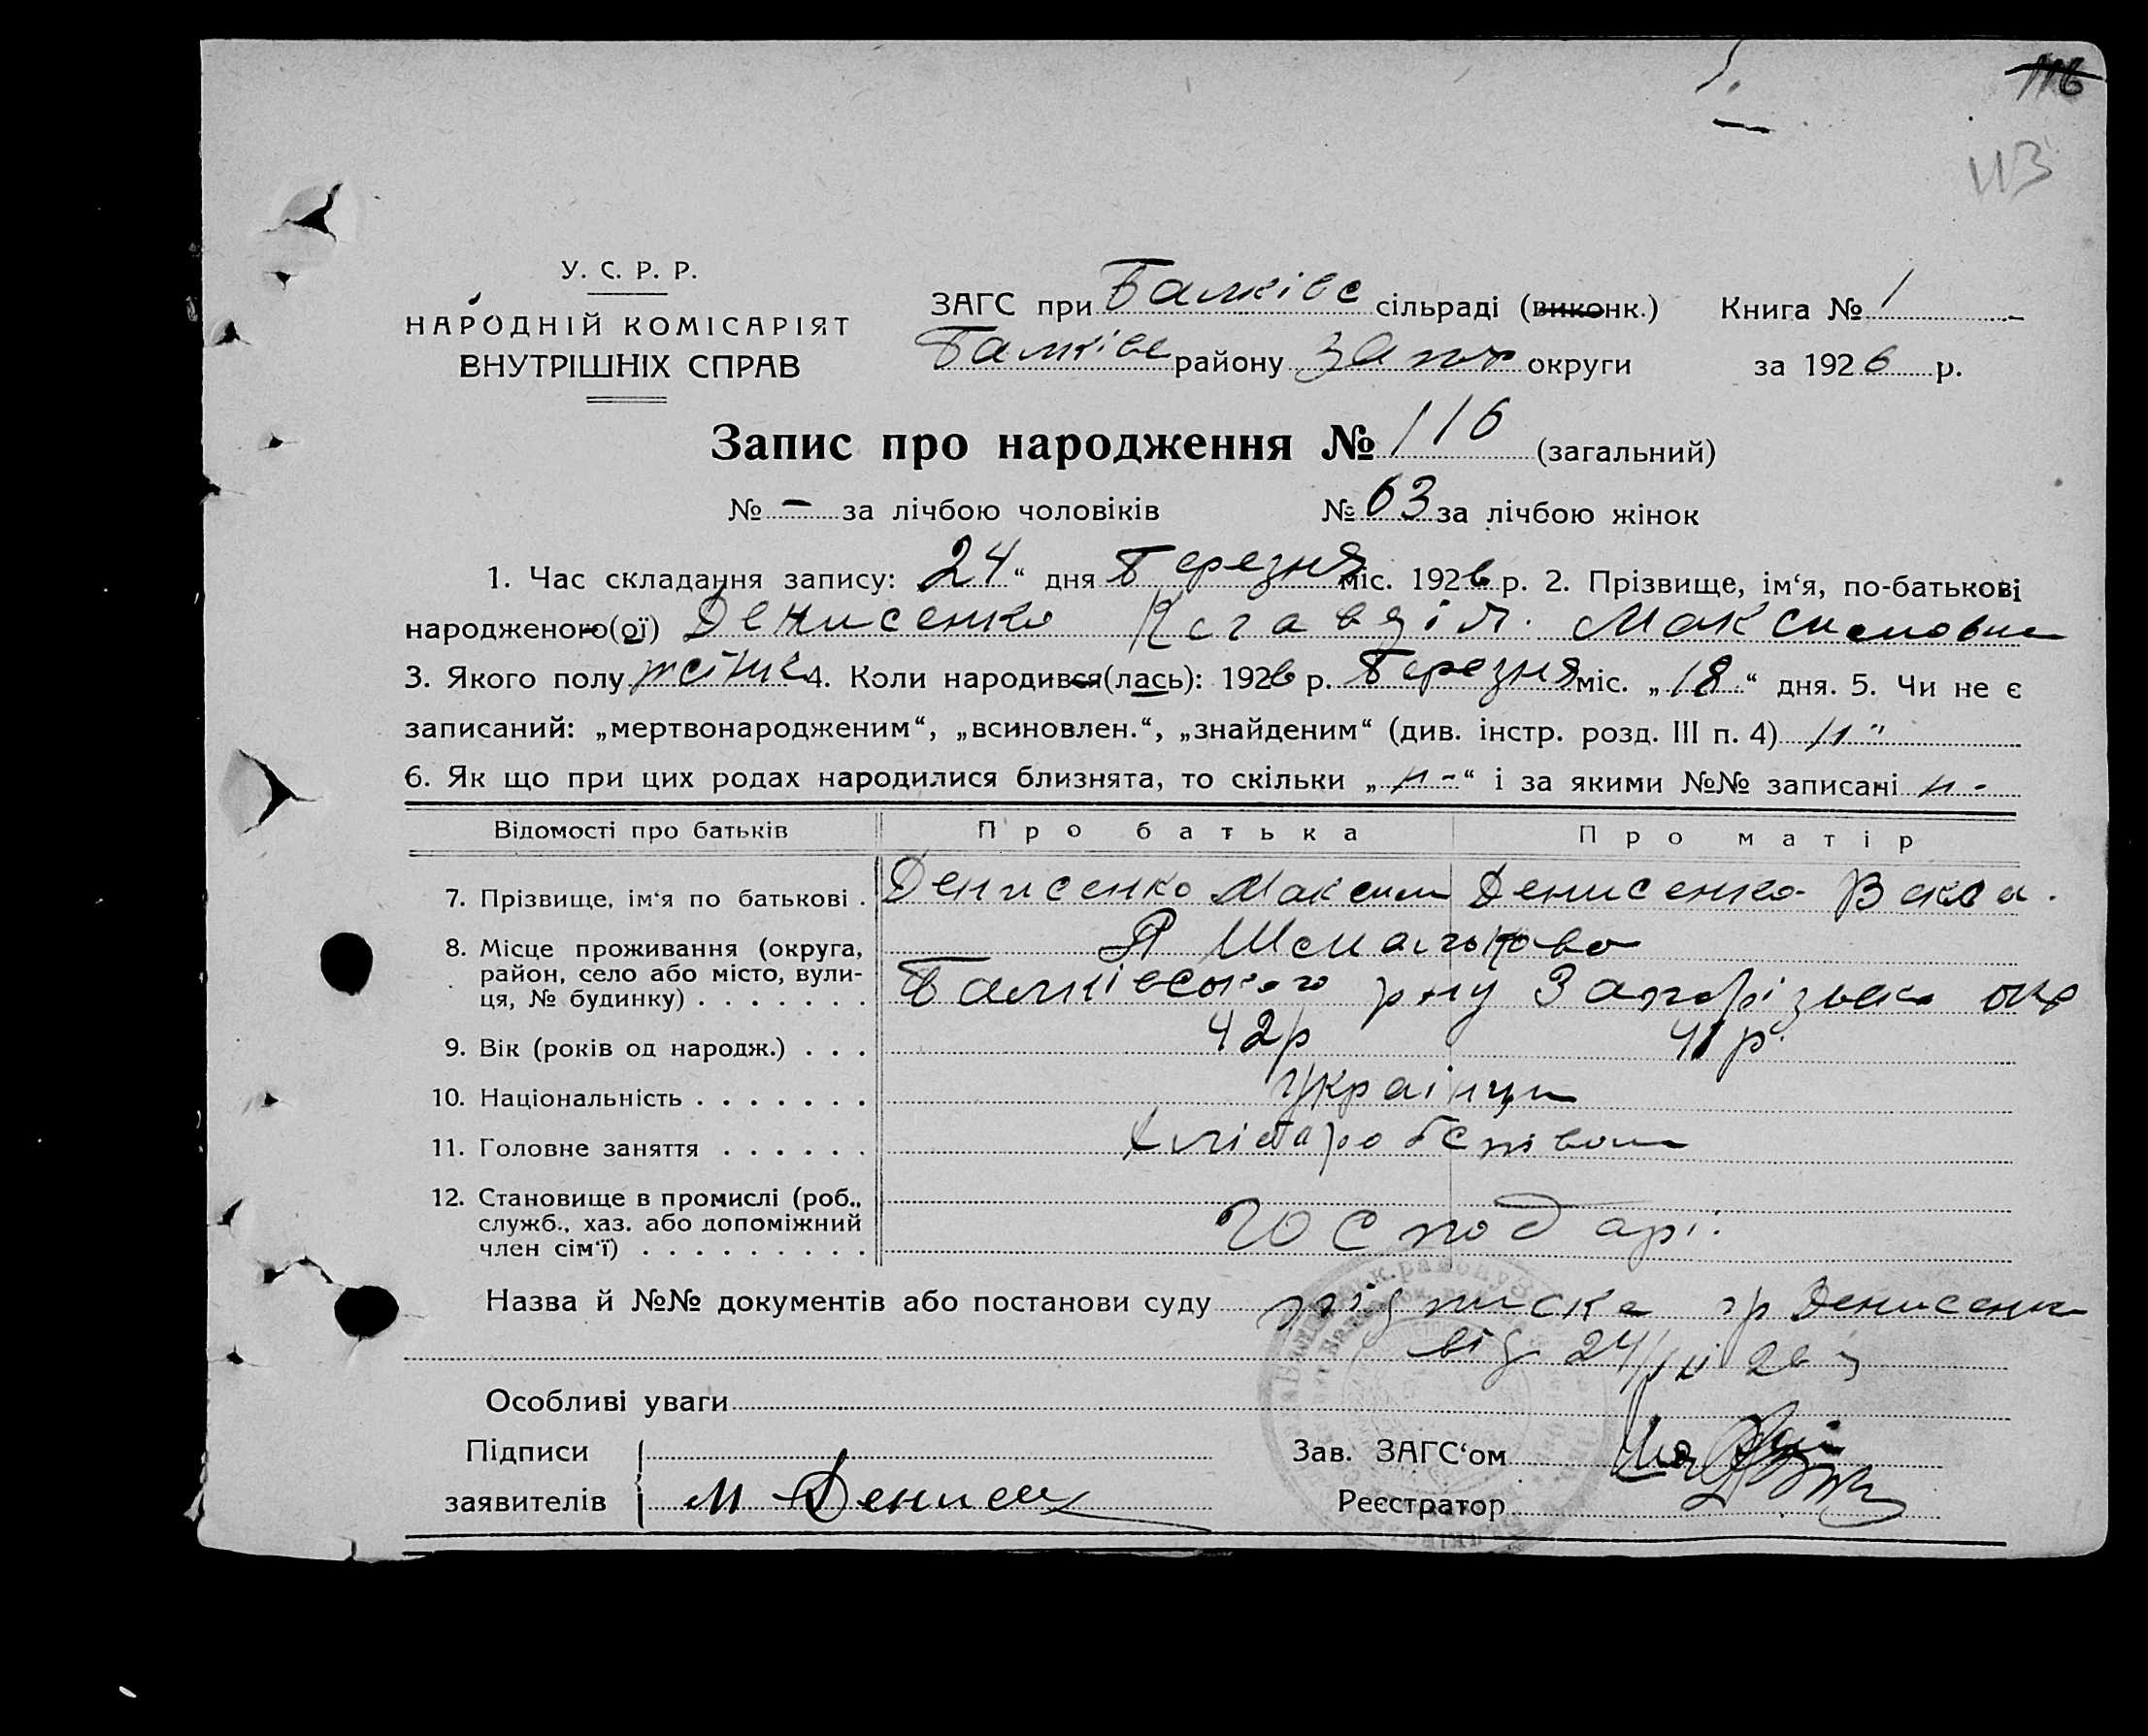 116
113
У. С. Р. Р.
НАРОДНІЙ КОМІСАРІЯТ
ВНУТРІШНІХ СПРАВ
ЗАГС при Балківс сільраді (виконк.) Книга № 1
Балківс району Запор округи за 1926 р.
Запис про народження № 116 (загальний)
№ - за лічбою чоловіків № 63 за лічбою жінок
1. Час складання запису: 24 “ дня Березня міс. 1926 р. 2. Прізвище, ім‘я, по-батькові
народженого(ої) Денисенко Клавдія. Максимовна
3. Якого полу жінк 4. Коли народився(лась): 1926 р. Березня міс. „ 18 “ дня. 5. Чи не є
записаний: „мертвонародженим“, „всиновлен.“, „знайденим“ (див. інстр. розд. III п. 4) н "
6. Як що при цих родах народилися близнята, то скільки „ н - “ і за якими №№ записані н -
Відомості про батьків Про батька Про матір
7. Прізвище, ім‘я по батькові . Денисенко Максим Денисенко Векла.
8. Місце проживання (округа,
район, село або місто, вули-
ця, № будинку) . . . . . . .
Балківського р-ну Запорізька окр
9. Вік (років од народж.) . . . 42р 41р.
10. Національність . . . . . . . українци
11. Головне заняття . . . . . . хліборо
12. Становище в промислі (роб.,
служб., хаз. або допоміжний
член сім‘ї) . . . . . . . . . Господарі.
Назва й №№ документів або постанови суду підписка гр Денисенк
від 24/III 26
Особливі уваги
Підписи Зав. ЗАГС‘ом
заявителів М Денисен Реєстратор